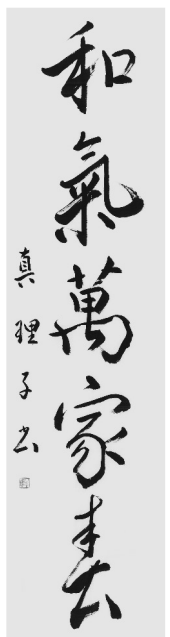 和氣萬家春
真理子书